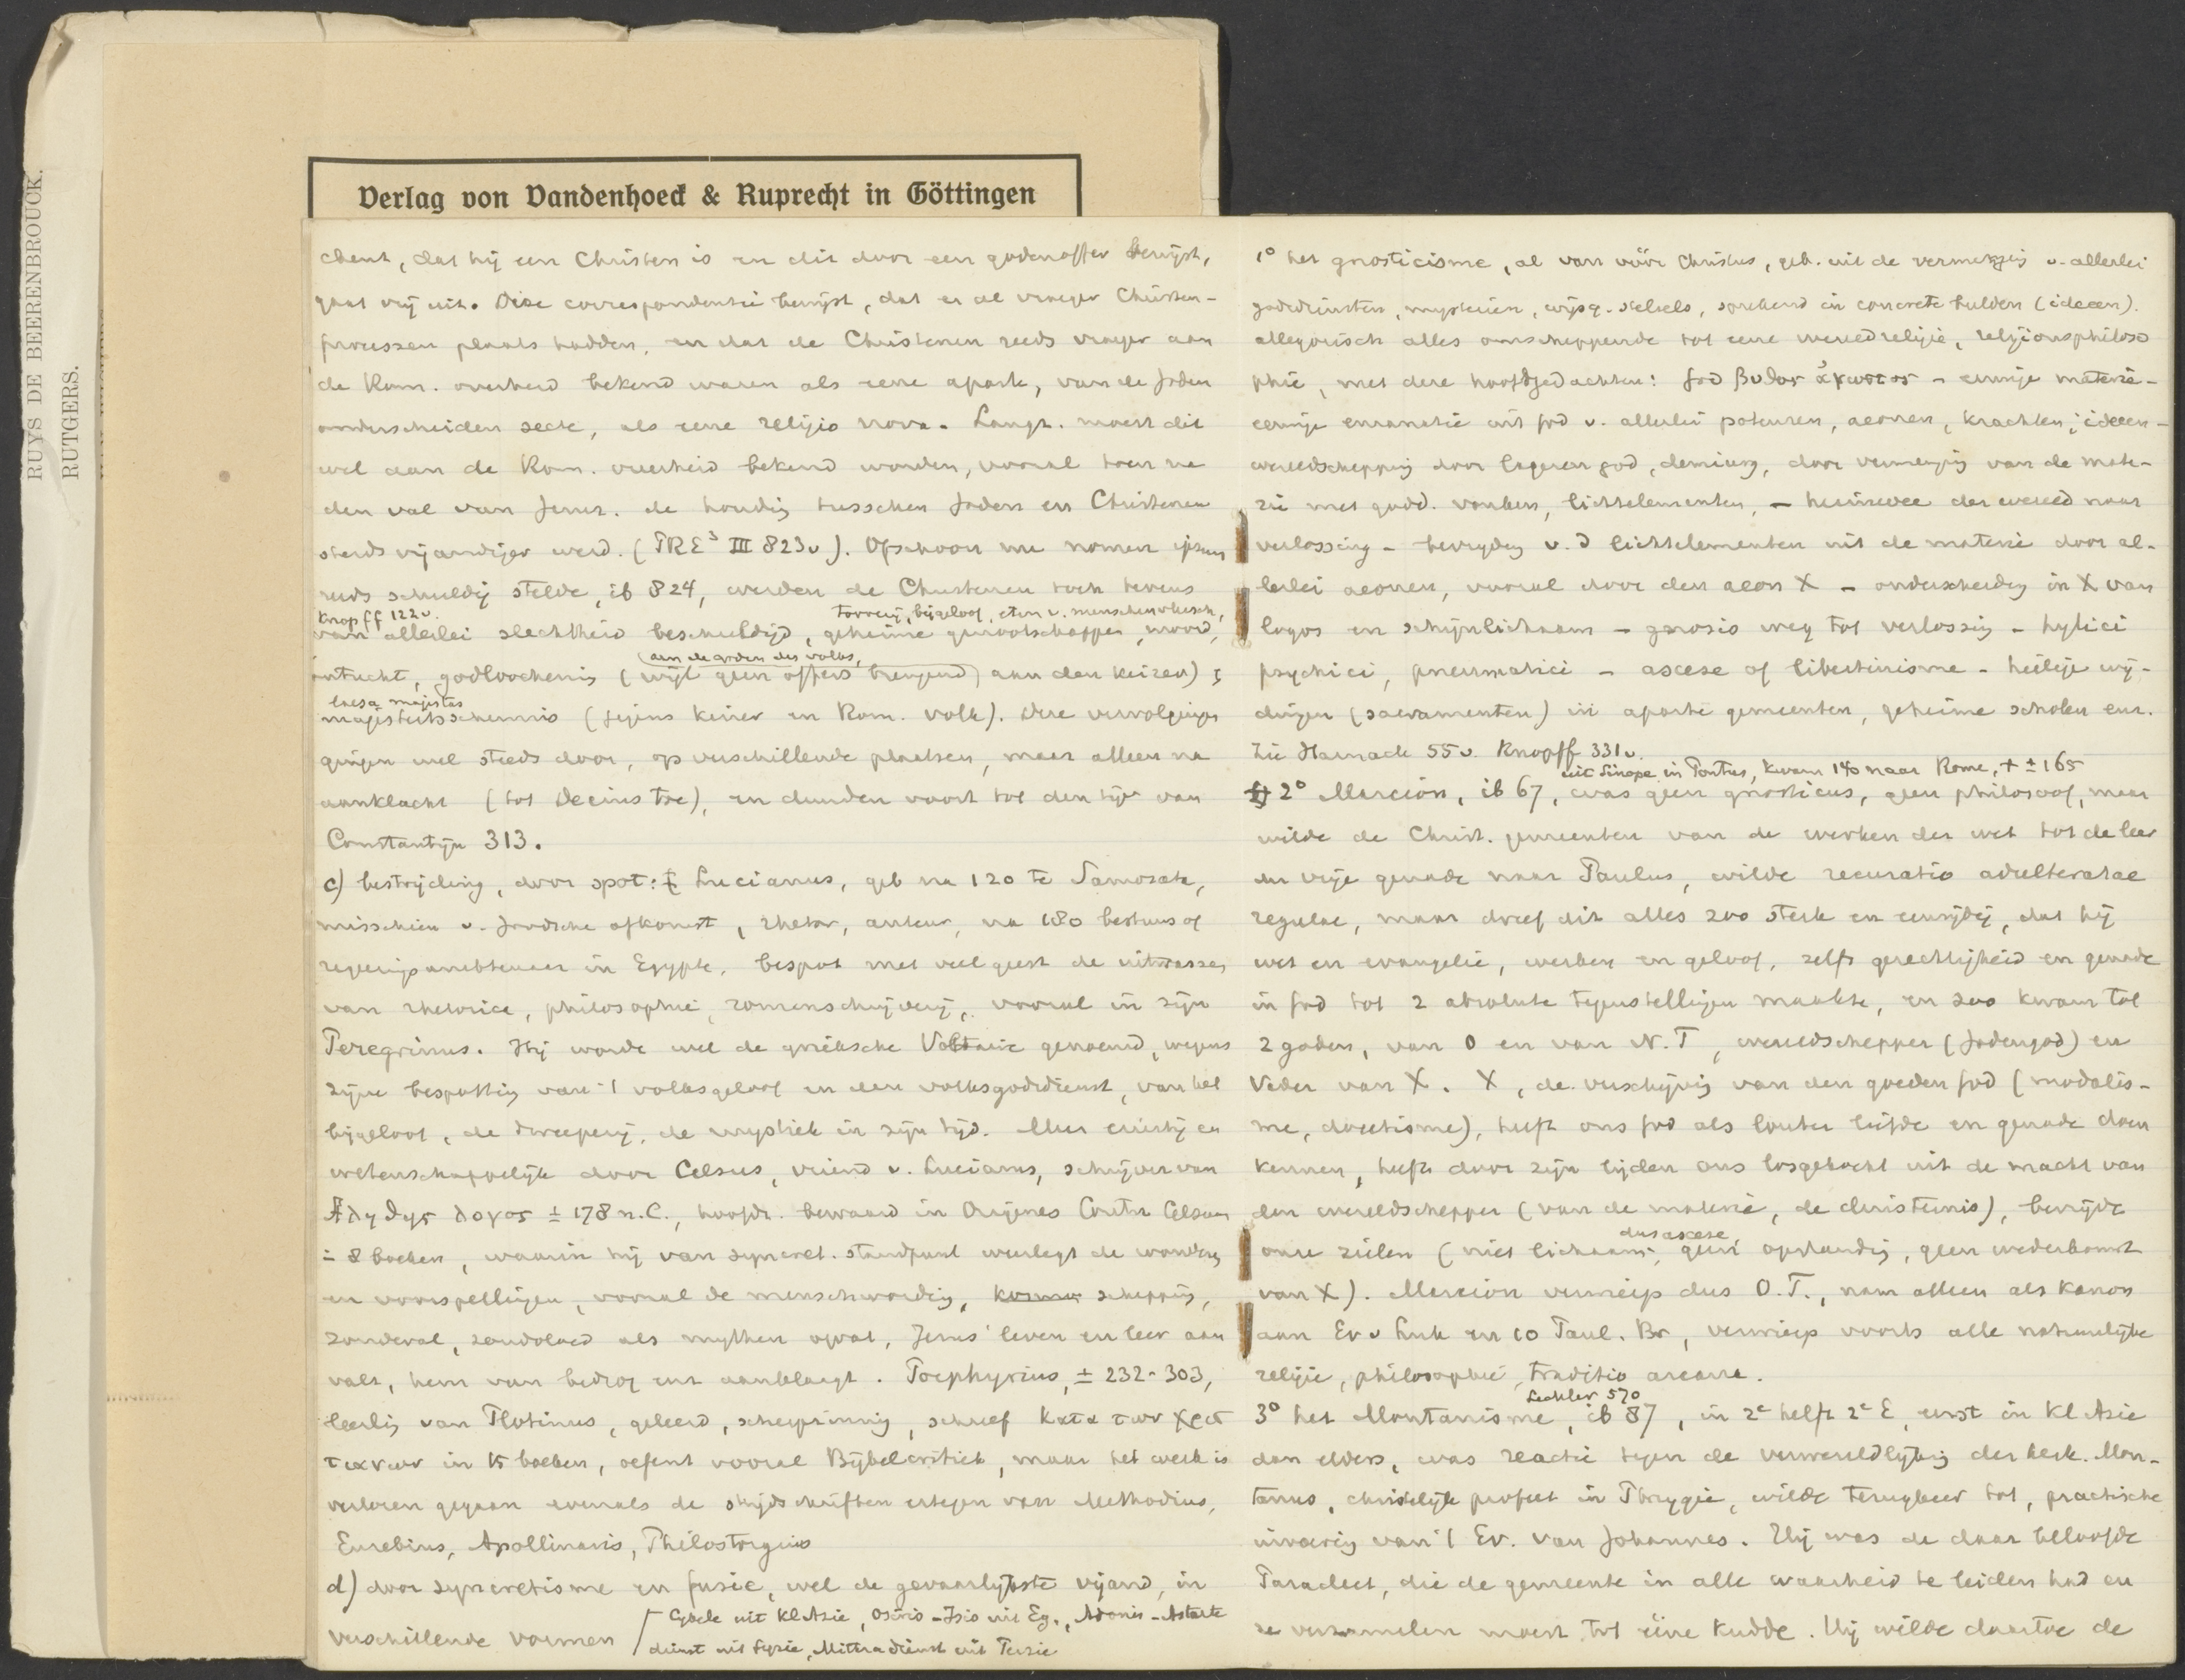 RUYS DE BEERENBROUCK.
RUTGERS.
Verlag von Vandenhoeck & Ruprecht in Göttingen
chent, dat hij een Christen is en dit door een godenoffer bewijst,
gaat vrij uit. Deze correspondentie bewijst, dat er al vroeger Christen-
processen plaats hadden, en dat de Christenen reeds vroeger aan
de Rom. overheid bekend waren als eene aparte, van de Joden
onderscheiden secte, als eene religio nova. Langz. moest dit
wel aan de Rom. overheid bekend worden, vooral toen na
den val van Jeruz. de houding tusschen Joden en Christenen
steeds vijandiger werd. (PRE³ III 823v). Ofschoon nu nomen ipsum
reeds schuldig stelde, ib 824, werden de Christenen toch tevens
Knopff 122v. tooverij, bijgeloof, eten v. menschenvleesch,
van allerlei slechtheid beschuldigd, geheime genootschappen, moord,
aan de goden des volks,
ontucht, godloochenis (wijl geen offers brengend) aan den keizer) ;
laesa majestas
majesteitsschennis (jegens keizer en Rom. volk). Deze vervolgingen
gingen wel steeds door, op verschillende plaatsen, maar alleen na
aanklacht (tot Decius toe), en duurden voort tot den tijd van
Constantijn 313.
c) bestrijding, door spot: Lucianus, geb na 120 te Samosata,
misschien v. Joodsche afkomst, rhetor, auteur, na 180 bestuurs of
regeeringsambtenaar in Egypte, bespot met veel geest de uitwassen
van rhetorica, philosophie, romanschrijverij, vooral in zijn
Peregrinus. Hij wordt wel de grieksche Voltaire genoemd, wegens
zijne bespotting van 't volksgeloof en den volksgodsdienst, van het
bijgeloof, de dweeperij, de mystiek in zijn tijd. Meer ernstig en
wetenschappelijk door Celsus, vriend v. Lucianus, schrijver van
Αληθης λογος ± 178 n.C., hoofdz. bewaard in Origenes Contra Celsum
8 boeken, waarin hij van syncret. standpunt weerlegt de wonderen
en voorspellingen, vooral de menschwording, kosmos schepping,
zondeval, zondvloed als mythen opvat, Jezus' leven en leer aan
valt, hem van bedrog enz aanklaagt. Porphyrius, ± 232-303,
leerling van Plotinus, geleerd, scherpzinnig, schreef κατα των χρισ
τιανων in 15 boeken, oefent vooral Bijbelcritiek, maar het werk is
verloren gegaan evenals de strijdschriften ertegen van Methodius,
Eusebius, Apollinaris, Philostorgius
d) door syncretisme en fusie, wel de gevaarlijkste vijand, in
verschillende vormen
Cybele uit Kl Azie, Osiris-Isis uit Eg., Adonis-Astarte
dienst uit Syrie, Mithradienst uit Perzie
1° het gnosticisme, al van vóór Christus, geb. uit de vermenging v. allerlei
godsdiensten, mysterien, wijsg. stelsels, sprekend in concrete beelden (ideeen).
allegorisch alles omscheppende tot eene wereldreligie, religionsphiloso
phie, met deze hoofdgedachten: God βυθος ἀγνωστος - eeuwige materie -
eeuwige emanatie uit God v. allerlei potenzen, aeonen, krachten, ideeen -
wereldschepping door lageren god, demiurg, door vermenging van de mate-
rie met godd. vonken, lichtelementen, - heimwee der wereld naar
verlossing - bevrijding v.d lichtelementen uit de materie door al-
lerlei aeonen, vooral door den aeon X - onderscheiding in X van
logos en schijnlichaam - gnosis weg tot verlossing - hylici
psychici, pneumatici - ascese of libertinisme - heilige wij-
dingen (sacramenten) in aparte gemeenten, geheime scholen enz.
Zie Harnack 55v. Knopff 331v.
uit Sinope in Pontus, kwam 140 naar Rome, † ± 165
2° Marcion, ib 67, was geen gnosticus, geen philosoof, maar
wilde de Christ. gemeenten van de werken der wet tot de leer
der vrije genade naar Paulus, wilde recuratio adulteratae
regulae, maar dreef dit alles zoo sterk en eenzijdig, dat hij
wet en evangelie, werken en geloof, zelfs gerechtigheid en genade
in God tot 2 absolute tegenstellingen maakte, en zoo kwam tot
2 goden, van O en van N.T, wereldschepper (Jodengod) en
Vader van X. X, de verschijning van den goeden God (modalis-
me, docetisme), heeft ons God als louter liefde en genade doen
kennen, heeft door zijn lijden ons losgekocht uit de macht van
den wereldschepper (van de materie, de duisternis), bevrijdt
dus ascese
onze zielen (niet lichaam, geen opstanding, geen wederkomst
van X). Marcion verwierp dus O.T., nam alleen als kanon
aan Ev v Luk en 10 Paul. Br, verwierp voorts alle natuurlijke
religie, philosophie, traditio arcana.
Lechler 570
3° het Montanisme, ib 87, in 2e helft 2e E, eerst in Kl Azie
dan elders, was reactie tegen de verwereldlijking der kerk. Mon-
tanus, christelijk profeet in Phrygie, wilde terugkeer tot, practische
invoering van 't Ev. van Johannes. Hij was de daar beloofde
Paracleet, die de gemeente in alle waarheid te leiden had en
te verzamelen moest tot éene kudde. Hij wilde daartoe de